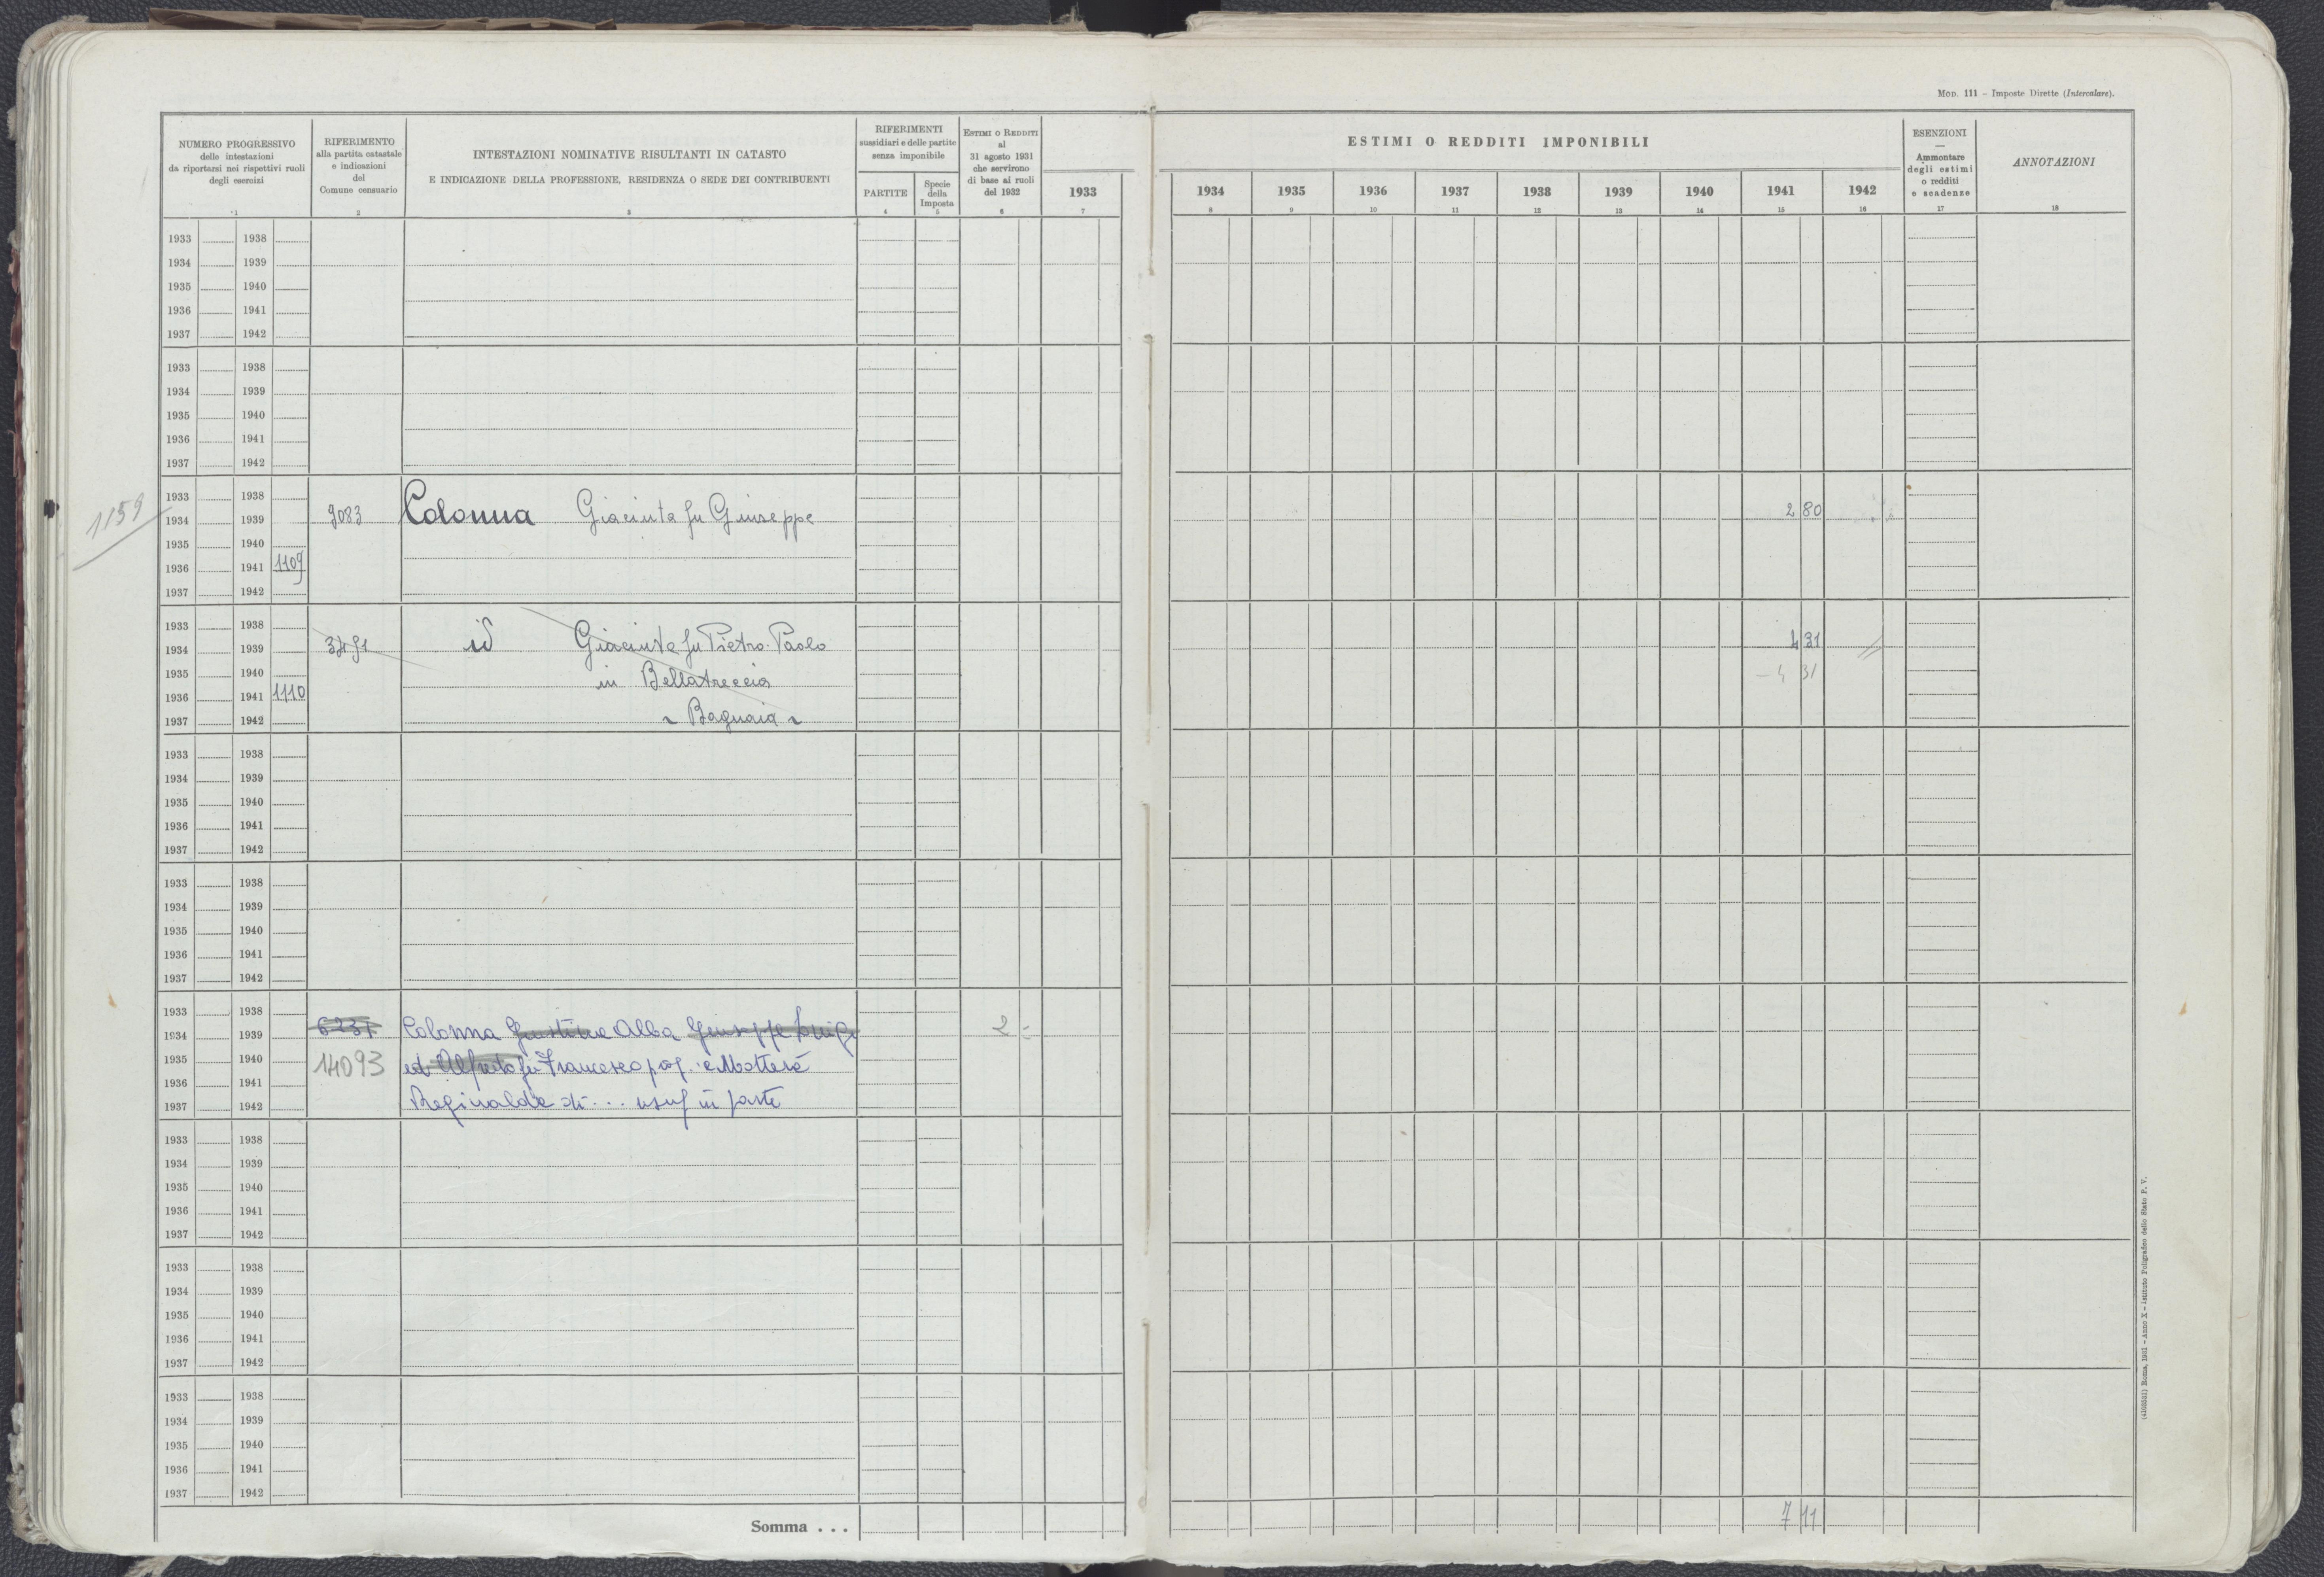 MOD. 111 - Imposte Dirette (Intercalare).
NUMERO PROGRESSIVO
delle intestazioni
da riportarsi nei rispettivi ruoli
degli esercizi
1
RIFERIMENTO
alla partita catastale
e indicazioni
del
Comune censuario
2
INTESTAZIONI NOMINATIVE RISULTANTI IN CATASTO
E INDICAZIONE DELLA PROFESSIONE, RESIDENZA O SEDE DEI CONTRIBUENTI
3
RIFERIMENTI
sussidiari e delle partite
senza imponibile
PARTITE
4
Specie
della
Imposta
5
ESTIMI O REDDITI
al
31 agosto 1931
che servirono
di base ai ruoli
del 1932
6
1933
7
ESTIMI O REDDITI IMPONIBILI
1934 1935 1936 1937 1938 1939 1940 1941 1942
8 9 10 11 12 13 14 15 16
ESENZIONI
—
Ammontare
degli estimi
o redditi
e scadenze
17
ANNOTAZIONI
18
1933 1938
1934 1939
1935 1940
1936 1941
1937 1942
1933 1938
1934 1939
1935 1940
1936 1941
1937 1942
1159
1933 1938
1934 1939 9083 Colonna Giacinta fu Giuseppe 2 80
1935 1940
1936 1941 1109
1937 1942
1933 1938
1934 1939 3491 id Giacinta fu Pietro-Paolo 4 31
1935 1940 in Bellatreccia - 4 31
1936 1941 1110
1937 1942 Bagnaia
1933 1938
1934 1939
1935 1940
1936 1941
1937 1942
1933 1938
1934 1939
1935 1940
1936 1941
1937 1942
1933 1938
1934 1939 Colonna Giustina Alba Giuseppe Luigi 2 -
1935 1940 14093 ed Alfredo fu Francesco prop. e
1936 1941
1937 1942 di ... usuf in parte
1933 1938
1934 1939
1935 1940
1936 1941
1937 1942
1933 1938
1934 1939
1935 1940
1936 1941
1937 1942
1933 1938
1934 1939
1935 1940
1936 1941
1937 1942
Somma . . . 7 11
Roma, 1931 - Anno X - Istituto Poligrafico dello Stato P. V.